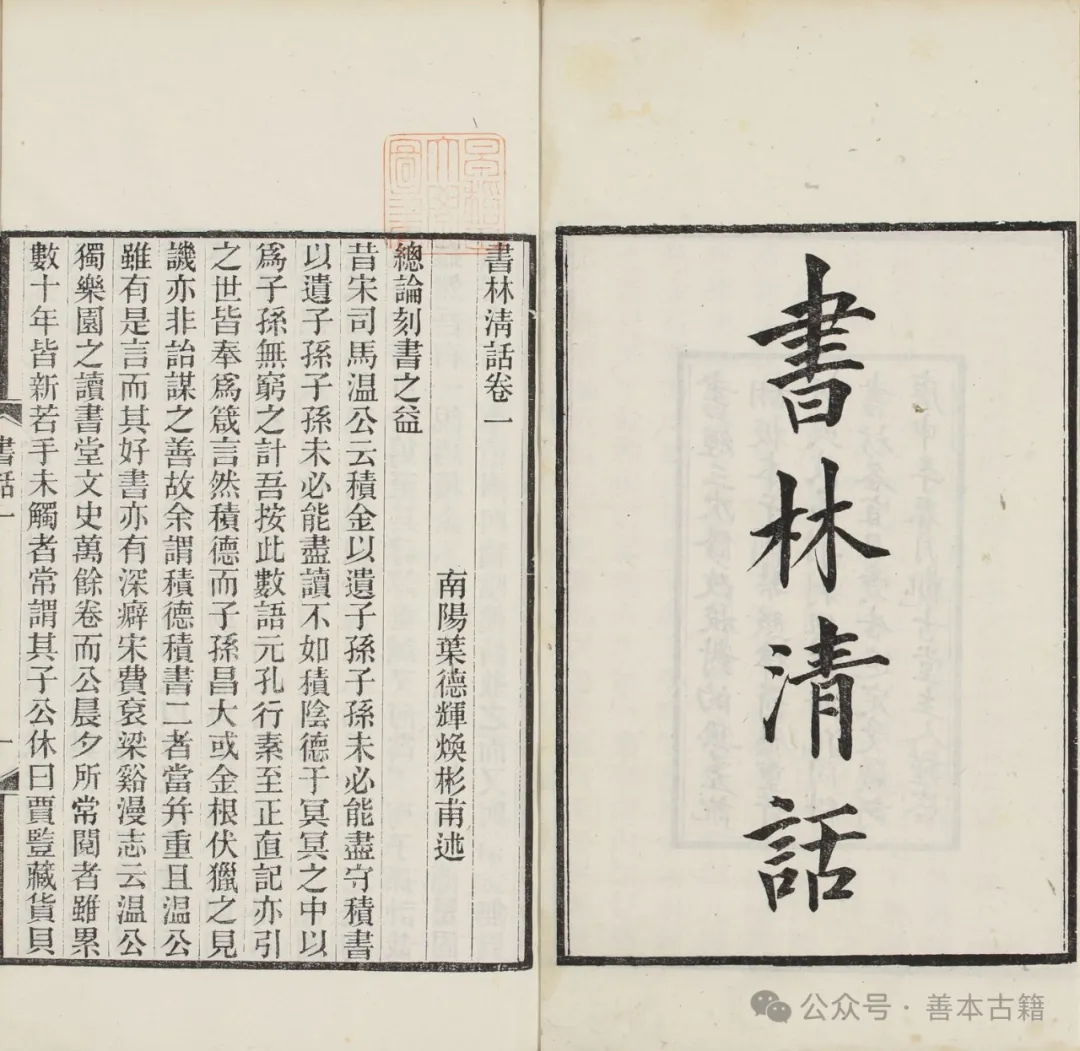 書林清話
書林清話卷一
南陽葉德輝煥彬甫述
總論刻書之益
昔宋司馬温公云積金以遺子孫子孫未必能盡守積書
以遺子孫子孫未必能盡讀不如積陰德于冥冥之中以
爲子孫無窮之計吾按此數語元孔行素至正直記亦引
之世皆奉爲箴言然積德而子孫昌大或金根伏獵之見
譏亦非詒謀之善故余謂積德積書二者當并重且温公
雖有是言而其好書亦有深癖宋費袞梁谿漫志云温公
獨樂園之讀書堂文史萬餘卷而公晨夕所常閱者雖累
數十年皆新若手未觸者常謂其子公休曰賈豎藏貨貝
書話一
一
公众号·善本古籍